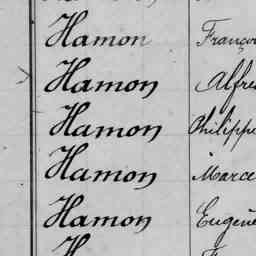 Hamon Franço
Hamon Alfre
Hamon Philippe
Hamon Marce
Hamon Eugèn